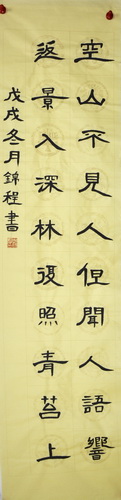 空山不見人但聞人語響
返景入深林復照青苔上
戊戌冬月錦程書